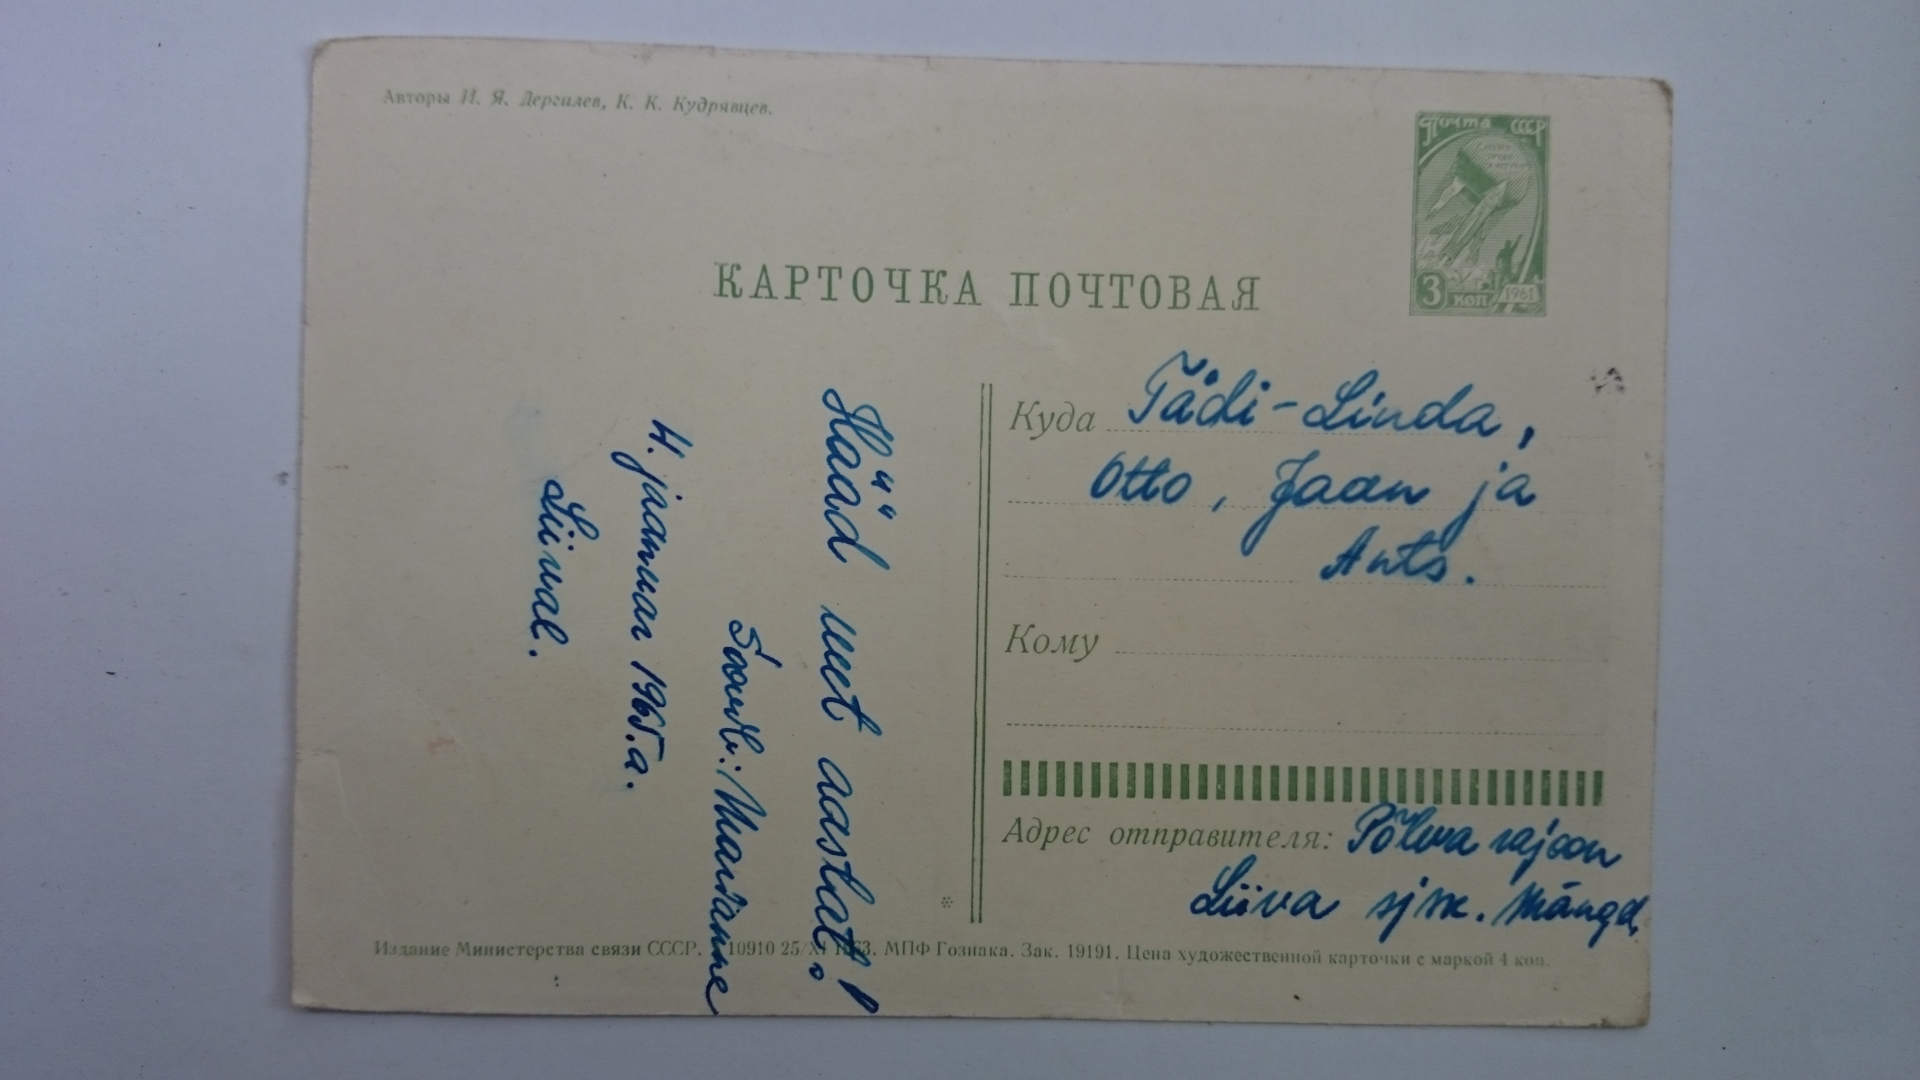 Авторы И. Я. Дергилев, К. К. Кудрявцев.
Почта СССР
3 коп
1961
КАРТОЧКА ПОЧТОВАЯ
Куда Tädi-Linda,
Otto, Jaan ja
Ants.
Кому
Адрес отправителя: Põlva rajoon
Liiva sjsk.
Hääd uut aastat!
Soovib: Marianne
4. jaanuar 1965.a.
Liival.
Издание Министерства связи СССР. 10910 25/XI 1963. МПФ Гознака. Зак. 19191. Цена художественной карточки с маркой 4 коп.